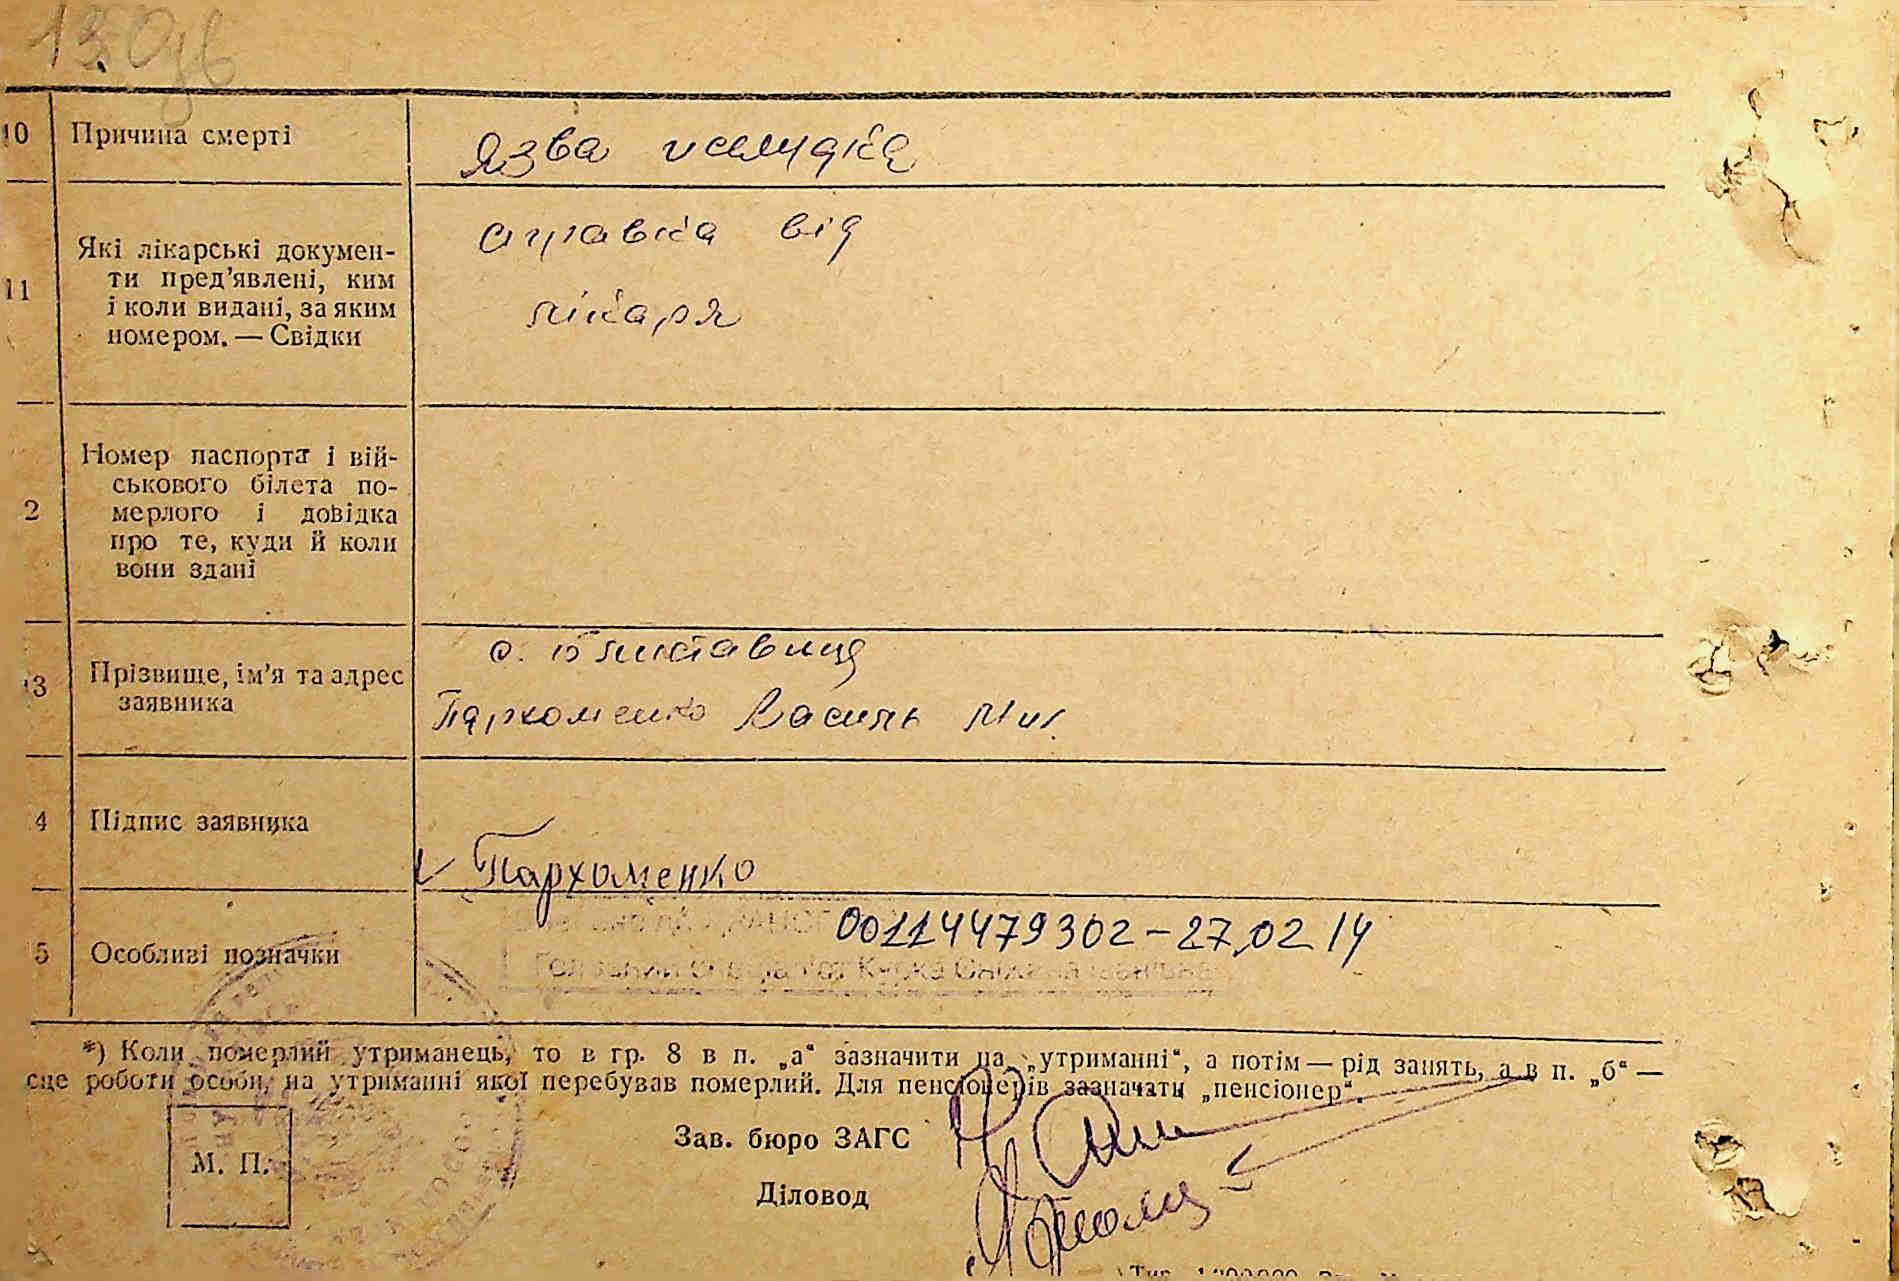 10 Причина смерті
язва желудка
11 Які лікарські докумен-
ти пред’явлені, ким
і коли видані, за яким
номером. — Свідки
справка від
лікаря
2 Номер паспорта і вій-
ськового білета по-
мерлого і довідка
про те, куди й коли
вони здані
3 Прізвище, ім’я та адрес
заявника
с. Блиставиця
Пархоменко Василь Мих.
4 Підпис заявника
Пархоменко
5 Особливі позначки
00114479302 – 27,02 14
*) Коли померлий утриманець, то в гр. 8 в п. „а“ зазначити на „утриманні“, а потім — рід занять, а в п. „б“ —
сце роботи особи, на утриманні якої перебував померлий. Для пенсіонерів зазначати „пенсіонер“.
Зав. бюро ЗАГС
М. П.
Діловод